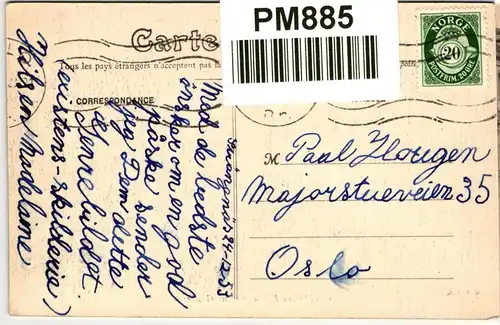 PM885
Carte
Tous les pays étrangers n'acceptent pas la
CORRESPONDANCE
NORGE
20
POSTFRIM. 20 ØRE
24-12-53
Med de bedste
ønsker om en god
Påske sender
jeg Dem dette
Genrebildet
Hilsen Madelaine
M Paul
Majorstueveien 35
Oslo